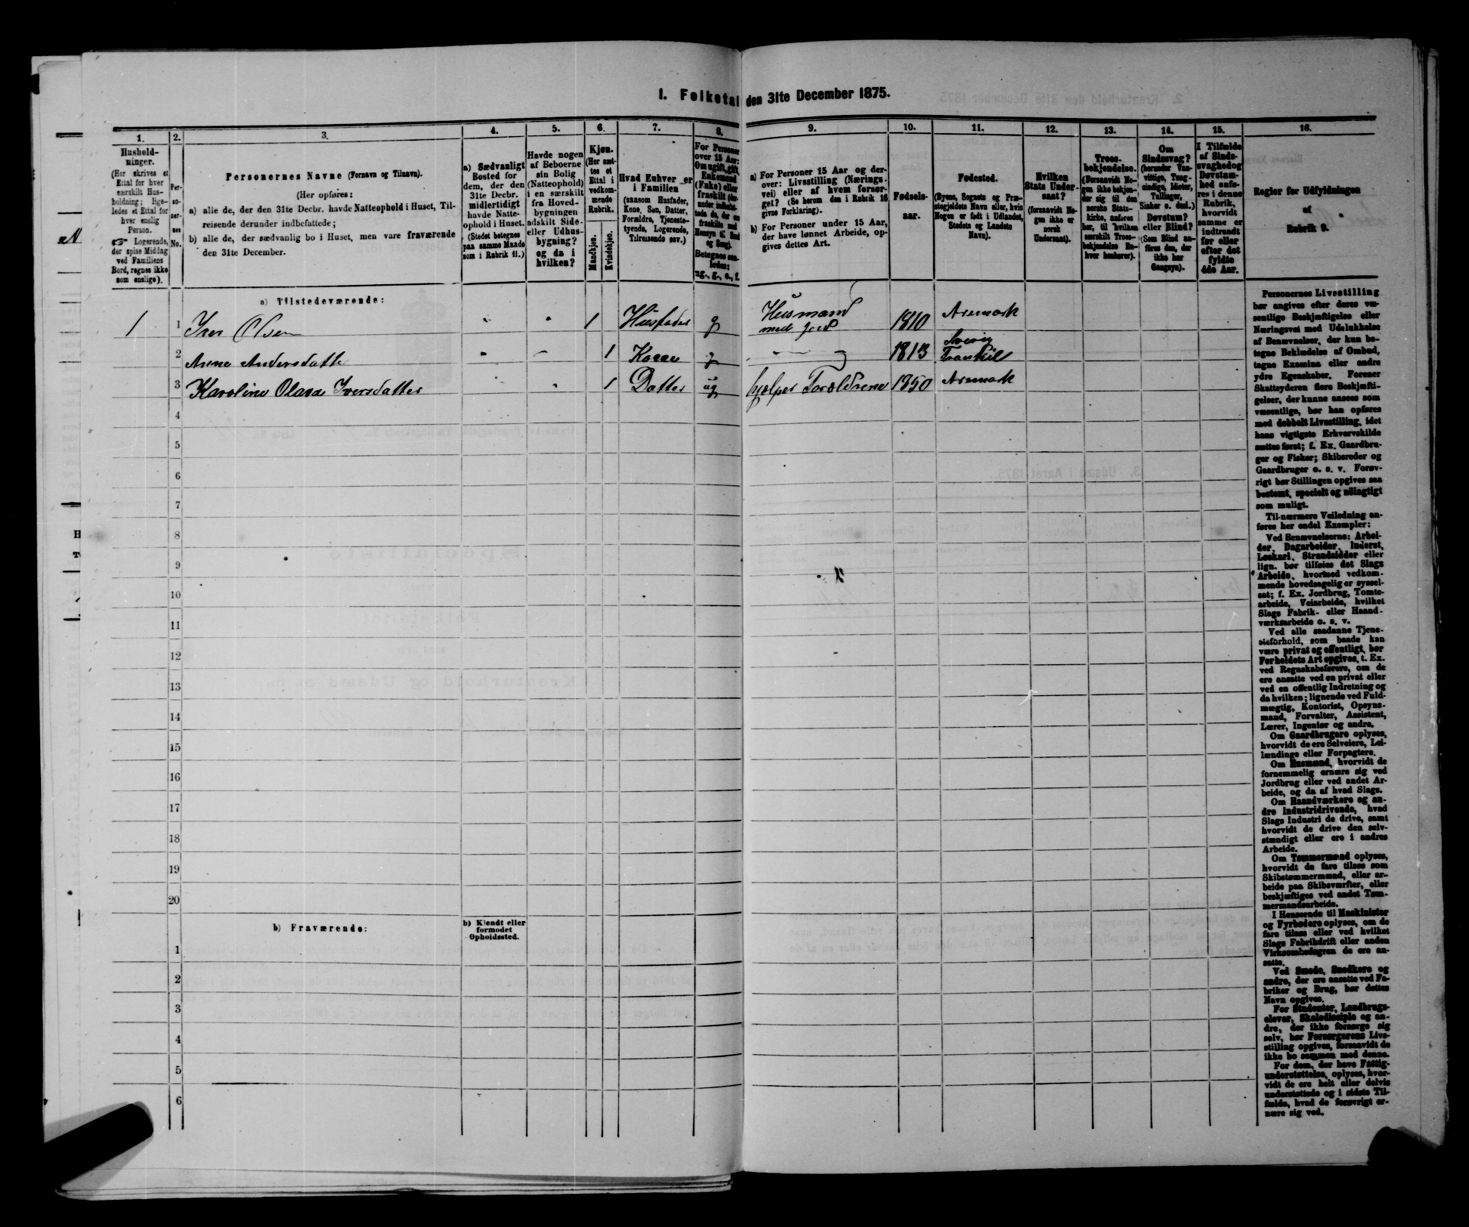 I. Folketal den 31te December 1875.
1.
2.
3.
4.
5.
6.
7.
8.
9.
10.
11.
12.
13.
14.
15.
16.
Hushold-
ninger.
(Her skrives et
Ettal for hver
særskilt Hus-
holdning; lige-
ledes et Ettal for
hver enslig
Person.
Logerende,
der spise Middag
ved Familiens
Bord, regnes ikke
som enslige).
Per-
so-
ner-
nes
No.
Personernes Navne (Fornavn og Tilnavn).
(Her opføres:
a) alle de, der den 31te Decbr. havde Natteophold i Huset, Til-
reisende derunder indbefattede;
b) alle de, der sædvanlig bo i Huset, men vare fraværende
den 31te December.
a) Sædvanligt
Bosted for
dem, der den
31te Decbr.
midlertidigt
havde Natte-
ophold i Huset.
(Stedet betegnes
paa samme Maade
som i Rubrik 11.)
Havde nogen
af Beboerne
sin Bolig
(Natteophold)
i en særskilt
fra Hoved-
bygningen
adskilt Side-
eller Udhus-
bygning?
og da i
hvilken?
Kjøn.
(Her sæt-
tes et
Ettal i
vedkom-
mende
Rubrik.
Mandkjøn.
Kvindekjøn.
Hvad Enhver er
i Familien
(saasom Husfader,
Kone, Søn, Datter,
Forældre, Tjeneste-
tyende, Logerende,
Tilreisende osv.)
For Personer
over 15 Aar:
Om ugift, gift,
Enkemand
(Enke) eller
fraskilt
Betegnes saa-
ledes:
ug., g., e., f.
a) For Personer 15 Aar og der-
over: Livsstilling (Nærings-
vei) eller af hvem forsør-
get? (Se herom den i Rubrik 16
givne Forklaring).
b) For Personer under 15 Aar,
der have lønnet Arbeide, op-
gives dettes Art.
Fødsels-
aar.
Fødested.
(Byens, Sognets og Præ-
stegjeldets Navn eller, hvis
Nogen er født i Udlandet,
Stedets og Landets
Navn).
Hvilken
Stats Under-
saat?
(forsaavidt No-
gen ikke er
norsk
Undersaat).
Troes-
bekjendelse.
(Forsaavidt No-
gen ikke bekjen-
der sig til den
norske Stats-
kirke, anføres
her, til hvilken
særskilt Troes-
bekjendelse En-
hver henhører).
Om
Sindssvag?
(herunder Van-
vittige, Tung-
sindige, Idioter,
Tullinger,
Sinker o. desl.)
Døvstum?
eller Blind?
(Som Blind an-
føres den, der
ikke har
Gangsyn).
I Tilfælde
af Sinds-
svaghed og
Døvstum-
hed anfø-
res i denne
Rubrik,
hvorvidt
samme er
indtraadt
før eller
efter det
fyldte
4de Aar.
Regler for Udfyldningen
af
Rubrik 9.
a) Tilstedeværende:
1 1 Iver Olsen 1 Husfader g Husmand med Jord 1810 Aremark
2 Anne Andersdatte 1 Kone g 1813
3 Karoline Olava Iversdatter 1 Datter ug hjælper Forældrene 1850 Aremark
4
5
6
7
8
9
10
11
12
13
14
15
16
17
18
19
20
b) Fraværende:
b) Kjendt eller
formodet
Opholdssted.
1
2
3
4
5
6
Personernes Livsstilling
bør angives efter deres væ-
sentlige Beskjæftigelse eller
Næringsvei med Udelukkelse
af Benævnelser, der kun be-
tegne Beklædelse af Ombud,
tagne Examina eller andre
ydre Egenskaber. Forener
Skatteyderen flere Beskjæfti-
gelser, der kunne ansees som
væsentlige, bør han opføres
med dobbelt Livsstilling, idet
hans vigtigste Erhvervskilde
sættes først; f. Ex. Gaardbru-
ger og Fisker; Skibsreder og
Gaardbruger o. s. v. Forøv-
rigt bør Stillingen opgives saa
bestemt, specielt og nøiagtigt
som muligt.
Til nærmere Veiledning an-
føres her endel Exempler:
Ved Benævnelserne: Arbei-
der, Dagarbeider, Inderst,
Løskarl, Strandsidder eller
lign. bør tilføies det Slags
Arbeide, hvormed vedkom-
mende hovedsagelig er syssel-
sat; f. Ex. Jordbrug, Tomte-
arbeide, Veiarbeide, hvilket
Slags Fabrik- eller Haand-
værksarbeide o. s. v.
Ved alle saadanne Tjene-
steforhold, som baade kan
være privat og offentligt, bør
Forholdets Art opgives, t. Ex.
ved Regnskabsførere, om de
ere ansatte ved en privat eller
ved en offentlig Indretning og
da hvilken; lignende ved Fuld-
mægtig, Kontorist, Opsyns-
mand, Forvalter, Assistent,
Lærer, Ingeniør og andre.
Om Gaardbrugere oplyses,
hvorvidt de ere Selveiere, Lei-
lændinge eller Forpagtere.
Om Husmænd, hvorvidt de
fornemmelig ernære sig ved
Jordbrug eller ved andet Ar-
beide, og da af hvad Slags.
Om Haandværkere og an-
dre Industridrivende, hvad
Slags Industri de drive, samt
hvorvidt de drive den selv-
stændigt eller ere i andres
Arbeide.
Om Tømmermænd oplyses,
hvorvidt de fare tilsøs som
Skibstømmermænd, eller ar-
beide paa Skibsværfter, eller
beskjæftiges ved andet Tøm-
mermandsarbeide.
I Henseende til Maskinister
og Fyrbødere oplyses, om de
fare tilsøs eller ved hvilket
Slags Fabrikdrift eller anden
Virksomhedsgren de ere an-
satte.
Ved Smede, Snedkere og
andre, der ere ansatte ved Fa-
briker og Brug, bør dettes
Navn opgives.
For Studenter, Landbrugs-
elever, Skoledisciple og an-
dre, der ikke forsørge sig
selv, bør Forsørgerens Livs-
stilling opgives, forsaavidt de
ikke bo sammen med denne.
For dem, der have Fattig-
understøttelse, oplyses, hvor-
vidt de ere helt eller delvis
understøttede og i sidste Til-
fælde, hvad de forøvrigt er-
nære sig ved.